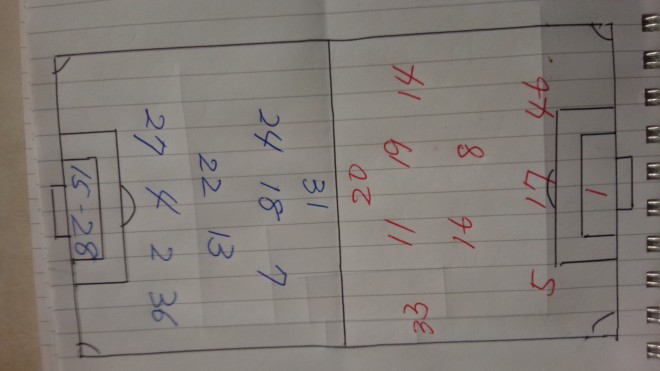 1
44 17 5
8 14
41 19 11 33
20
31
24 18 7
22 13
27 4 2 36
15-28